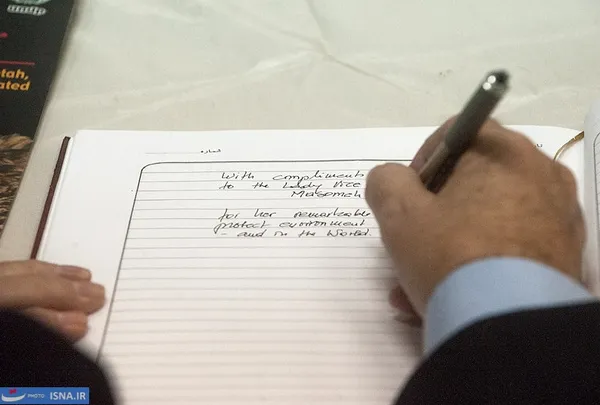 undp
tah,
ated
شماره
With compliments
to the Lady Vice
Masomeh
for her remarkable
protect environment
- and in the World.
PHOTO ISNA.IR